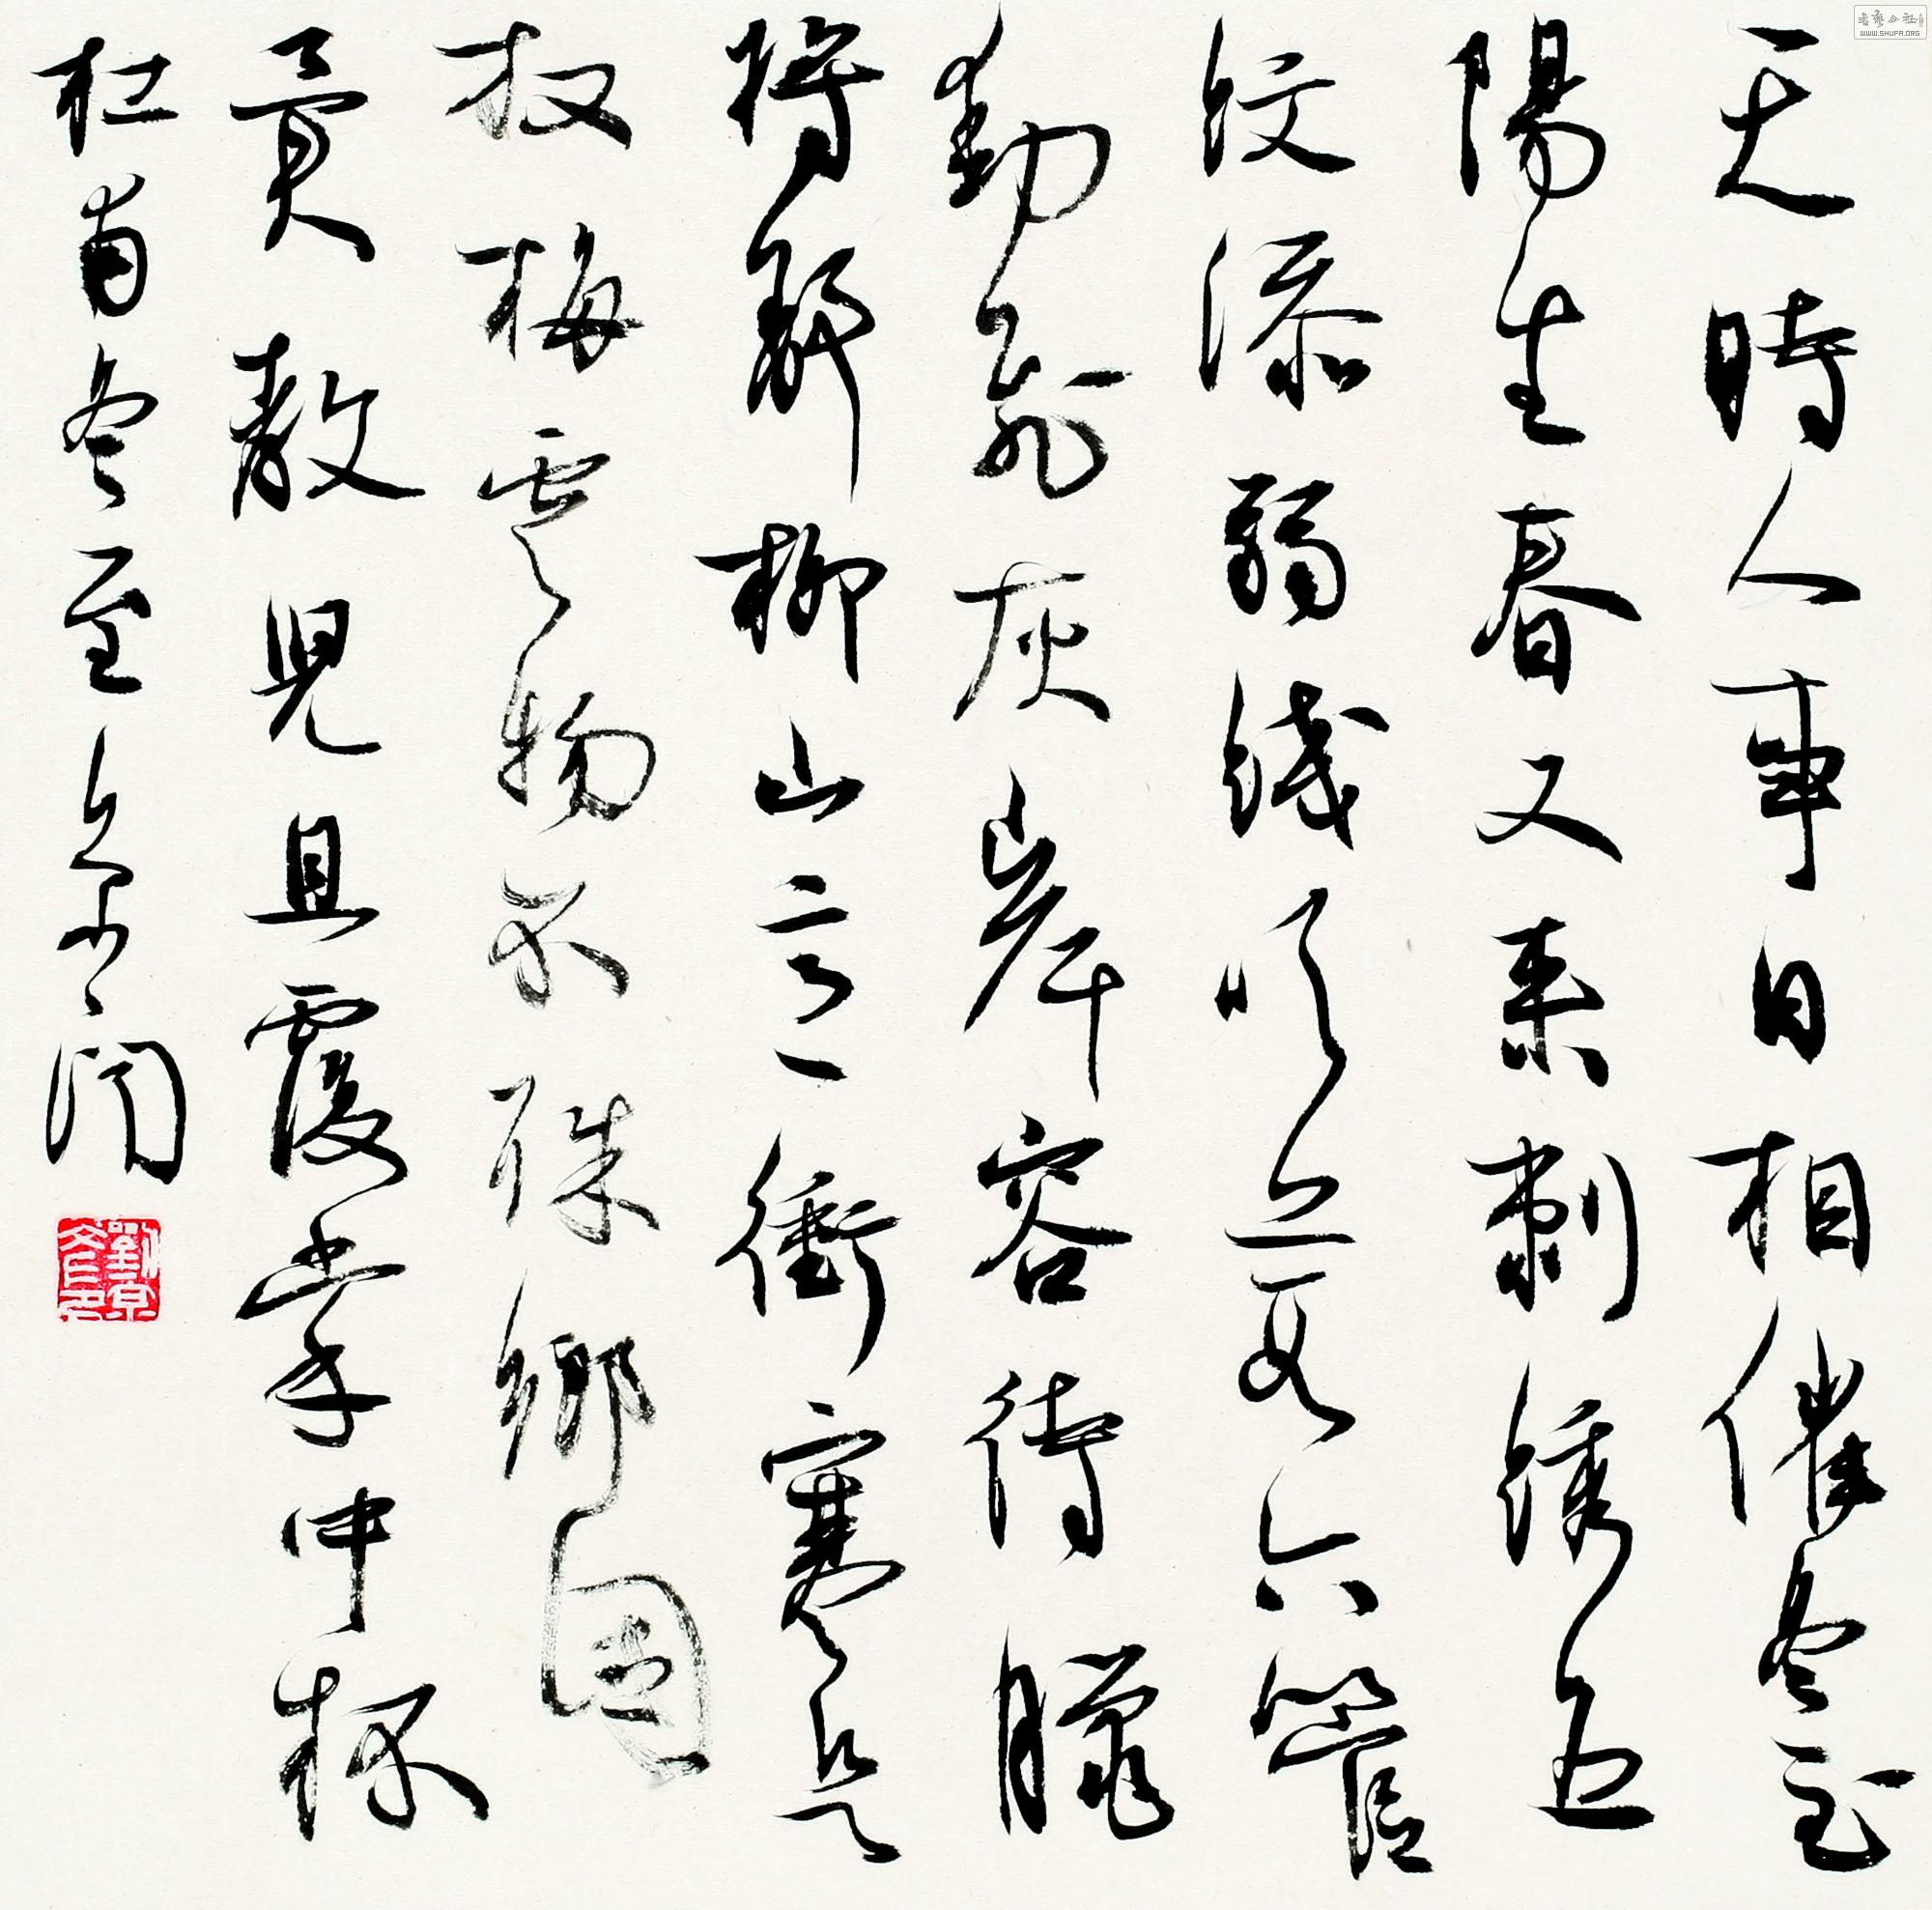 天時人事日相催冬至
陽生春又来刺绣五
紋添弱线吹葭六管
動飛灰岸容待臘
將舒柳山意衝寒欲
放梅雲物不殊鄉國
異教兒且覆掌中杯
杜甫冬至 京闻
书艺公社
WWW.SHUFA.ORG